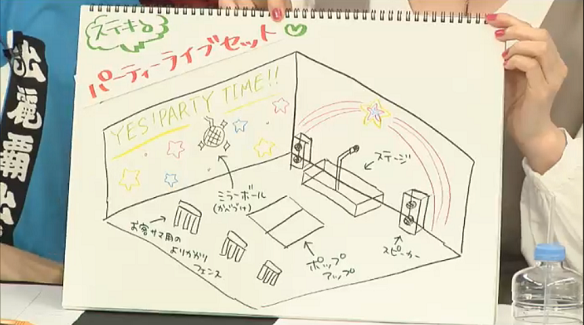 ステキな
パーティーライブセット
YES! PARTY TIME!!
ステージ
ミラーボール
(かべづけ)
お客サマ用の
よりかかり
フェンス
ポップ
アップ
スピーカー